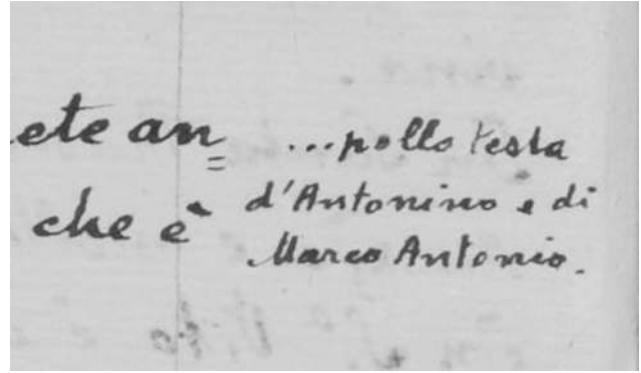 ete an= ...pollo testa
d'Antonino e di
che è
Marco Antonio.